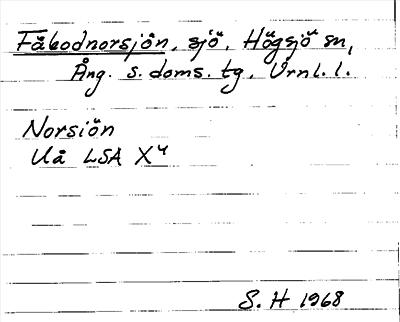 Fäbodnorsjön, sjö, Högsjö sn,
Ång. s. doms. tg, Vrnl. l.
Norsiön
Uå LSA X4
S. H 1968